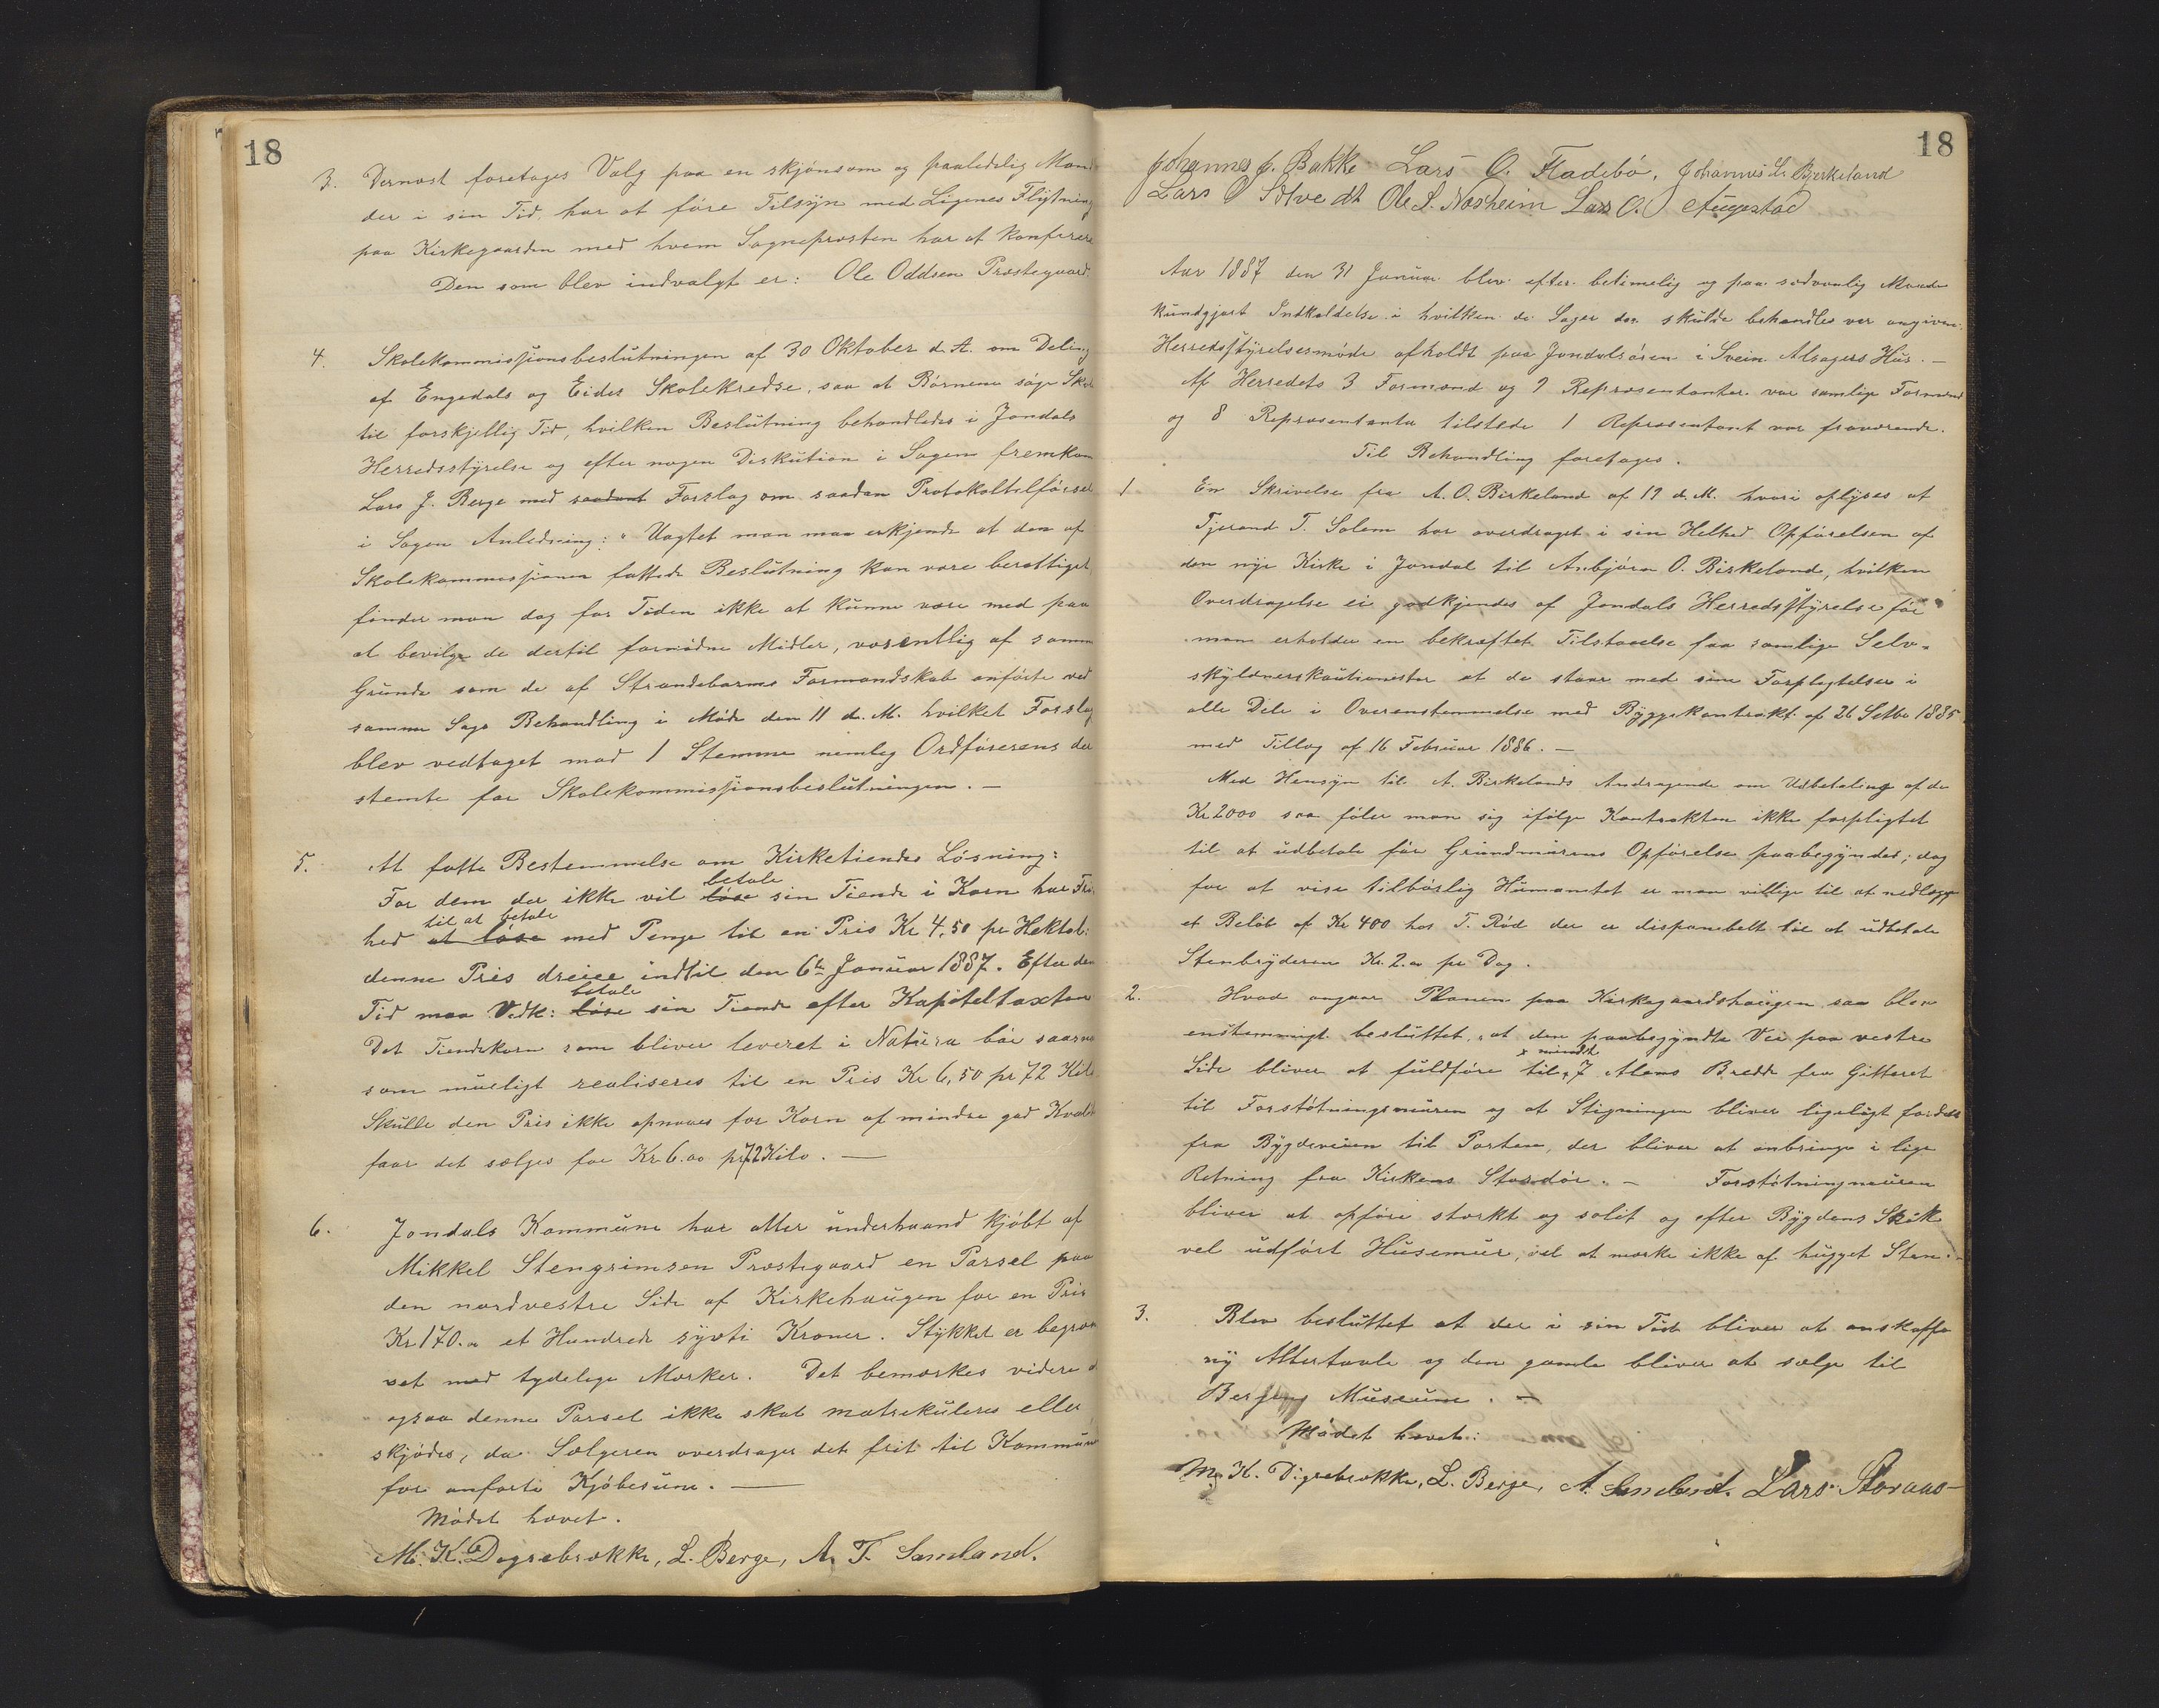 18
3. Dernæst foretages Valg paa en skjønsom og paalidelig Mand
der i sin Tid har at føre Tilsyn med Ligenes Flytning
paa Kirkegaarden med hvem Sognepresten har at konferere
Den som blev indvalgt er: Ole Oddsen Præstegaard.
4. Skolekommissionsbeslutningen af 30 Oktober d. A. om Deling
af Engedals og Eides Skolekredse, saa at Børnene søge Skole
til forskjellig Tid, hvilken Beslutning behandledes i Jondals
Herredsstyrelse og efter nogen Diskution i Sagen fremkom
Lars J. Berge med saadant Forslag om saadan Protokoltilførsel
i Sagen Anledning: "Uagtet man maa erkjende at den af
Skolekommissionen fattede Beslutning kan være berettiget
finder man dog for Tiden ikke at kunne være med paa
at bevilge de dertil fornødne Midler, væsentlig af samme
Grunde som de af Strandebarms Formandskab anførte ved
samme Sags Behandling i Møde den 11 d. M. hvilket Forslag
blev vedtaget mod 1 Stemme nemlig Ordførerens der
stemte for Skolekommissionsbeslutningen. —
5. At fatte Bestemmelse om Kirketiendes Løsning:
betale
For dem der ikke vil løse sin Tiende i Korn har Fri-
til at betale
hed at løse med Penge til en Pris Kr 4,50 pr Hektol:
denne Pris indtil den 6te Januar 1887. Efter den
betale
Tid maa Vedk: løse sin Tiende efter Kapiteltaxten
Det Tiendekorn som bliver leveret i Natura bør saasnart
som mueligt realiseres til en Pris Kr 6,50 pr 72 Kilo
Skulle den Pris ikke opnaaes for Korn af mindre god Kvalitet
faar det sælges for Kr 6.00 pr 72 Kilo. —
6. Jondals Kommune har atter underhaand kjøbt af
Mikkel Stengrimsen Præstegaard en Parsel paa
den nordvestre Side af Kirkehaugen for en Pris
Kr 170.00 et Hundrede sytti Kroner. Stykket er begræn-
set med tydelige Mærker. Det bemærkes videre at
ogsaa denne Parsel ikke skal matrikuleres eller
skjødes, da Sælgeren overdrager det frit til Kommunen
for anførte Kjøbesum. —
Mødet hævet.
M. K. Digrebrække, L. Berge, A. T. Samland.
18
Johannes J. Bakke Lars O. Fladebø, Johannes L. Bjerkeland
Lars O Solvedt Ole S. Næsheim Lars O. Augestad
Aar 1887 den 31 Januar blev efter betimelig og paa sædvanlig Maade
kundgjort Indkaldelse i hvilken de Sager der skulde behandles var angivne
Herredsstyrelsesmøde afholdt paa Jondalsøren i Svein Alsagers Hus. —
Af Herredets 3 Formænd og 9 Repræsentanter var samlige Formænd
og 8 Repræsentanter tilstede 1 Repræsentant var fraværende.
Til Behandling foretages.
1. En Skrivelse fra A. O. Birkeland af 19 d. M. hvori oplyses at
Tjerand T. Solem har overdraget i sin Helhed Opførelsen af
den nye Kirke i Jondal til Asbjørn O. Birkeland, hvilken
Overdragelse ei godkjendes af Jondals Herredsstyrelse før
man erholder en bekræftet Tilstaaelse fra samlige Selv-
skyldnerkautionister at de staar med sine Forplegtelser i
alle Dele i Overenstemmelse med Byggekontrakt af 26 Setbr 1885
med Tillæg af 16 Februar 1886. —
Med Hensyn til A. Birkelands Andragende om Udbetaling af de
Kr 2000 saa føler man sig ifølge Kontrakten ikke forpligtet
til at udbetale før Grundmurens Opførelse paabegyndes; dog
for at vise tilbørlig Humanitet er man villige til at nedlægge
et Beløb af Kr 400 hos T. Rød der er disponibelt til at udbetale
Stenbryderen Kr. 2.00 pr Dag.
2. Hvad angaar Planen paa Kirkegaardshaugen saa blev
enstemmigt besluttet, at den paabegyndte Vei paa vestre
x mindst
Side bliver at fuldføre til x 7 Alens Bredde fra Gitteret
til Forstøtningsmuren og at Stigningen bliver ligeligt fordelt
fra Bygdeveien til Porten, der bliver at anbringe i lige
Retning fra Kirkens Stordør. — Forstøtningmuren
bliver at opføre stærkt og solit og efter Bygdens Skik
vel udført Husemur, vel at mærke ikke af hugget Sten. —
3. Blev besluttet at der i sin Tid bliver at anskaffe
ny Altertavle og den gamle bliver at sælge til
Bergens Museum. —
Mødet hævet:
M. K. Digrebrække, L. Berge, A. Samland. Lars Storaas